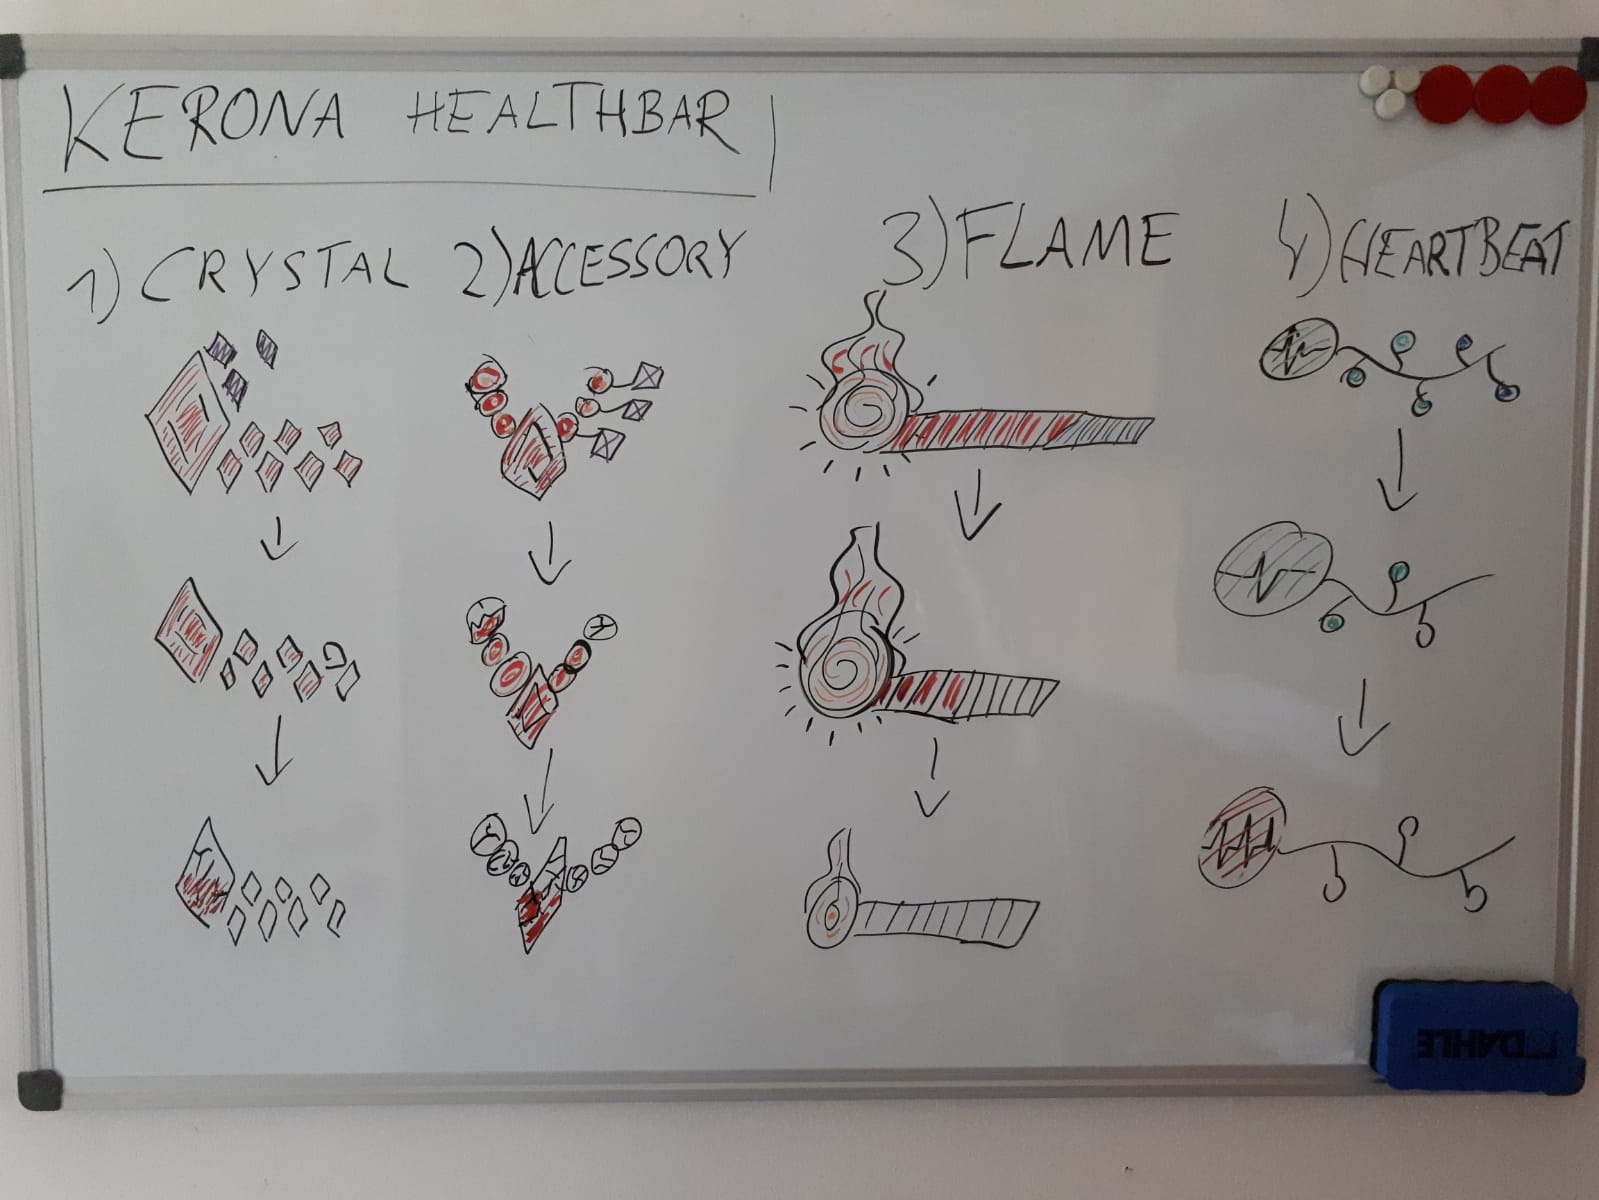 KERONA HEALTHBAR
1) CRYSTAL 2) ACCESSORY 3) FLAME 4) HEARTBEAT
DAHLE